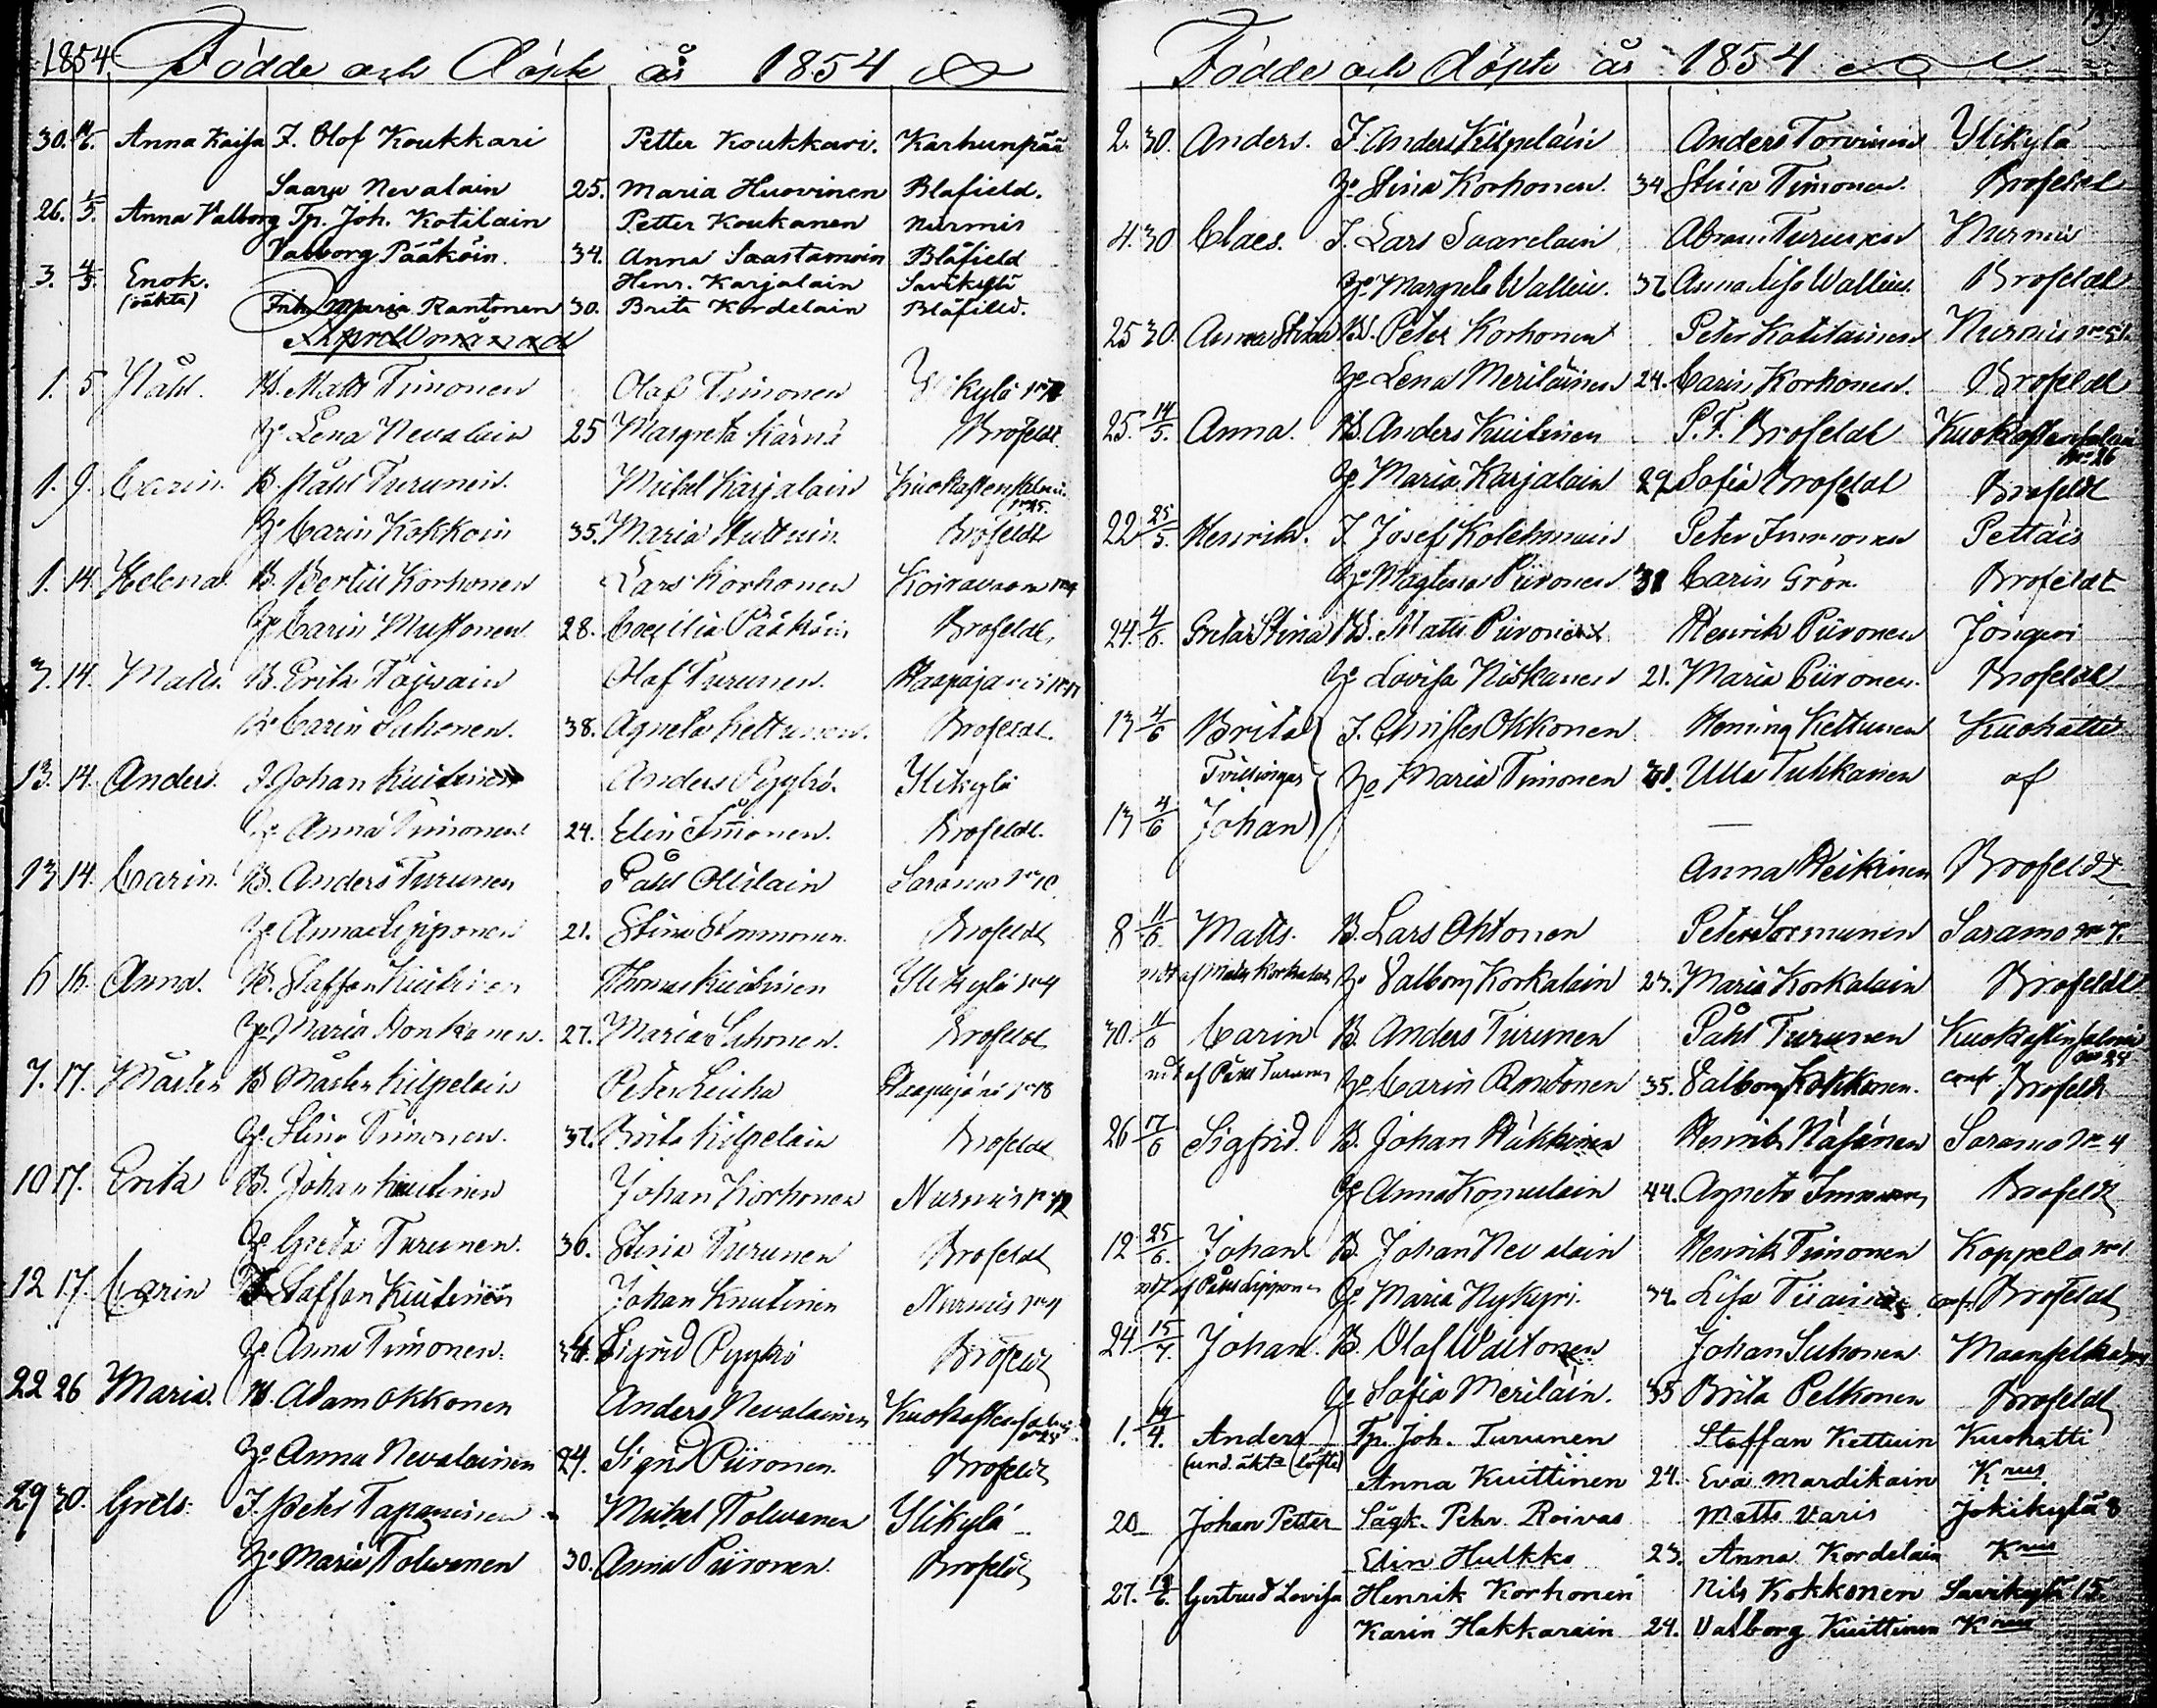 1854 Födde och Döpte år 1854
30. 14/6. Anna Kaisa I. Olof Koukkari Petter Koukkari. Karhunpää
Saara Nevalain 25. Maria Huovinen Blafield.
26. 1/5. Anna Valborg Tp. Joh. Kotilain Petter Koukanen Nurmis
Valborg Pääköin. 34. Anna Saastamoin Blåfield
3. 4/5. Enok. Henr. Karjalain Savikylä
(oäkta) Maria Rantonen 30. Brita Kordelain Blåfield.
April månad
1. 5 Påhl. B. Matts Timonen Olof Timonen Ylikylä
H:o Lena Nevalain 25 Margreta Kärnä Brofeldt.
1. 9. Carin. B. Påhl Turunen. Mickel Karjalain Kuokastensalmi
H:o Carin Kokkoin 35. Maria Huttuin. Brofeldt
1. 14. Helena B. Bertill Korhonen Lars Korhonen
H:o Carin Mustonen 28. Coecilia Pääköin Brofeldt.
3. 14. Matts. B. Erik Olof Turunen. Haapajärvi
H:o Carin Suhonen. 38. Agneta Kettunen. Brofeldt.
13. 14. Anders. I. Johan Kuitinen Anders Pyykö. Ylikylä
H:o Anna Timonen 24. Elin Timonen. Brofeldt.
13 14. Carin. B. Anders Turunen Påhl Ollilain Saramo No 10
H:o Anna Lipponen 21. Stina Brofeldt
6 16. Anna. B. Staffan Kuitinen Thomas Kuitinen Ylikylä No 4
H:o Maria Honkanen. 27. Maria Suhonen. Brofeldt
7. 17. Mårten B Mårten Kilpelain Peter Haapajärvi No 18
H:o Stina Timonen. 32. Brita Kilpelain Brofeldt
10 17. Erik B. Johan Kuitinen Johan Korhonen Nurmis
H:o Greta Turunen. 30. Stina Turunen Brofeldt
12 17. Carin B Staffan Kuitinen Johan Kuutinen Nurmis
H:o Anna Timonen. Sigrid Pyykö Brofeldt
22 26 Maria. B. Adam Okkonen Anders Nevalainen Kuokastensalmi
H:o Anna Nevalainen 24. Sigrid Piironen. Brofeldt
29 30. Greta. I. Peter Tapaninen Mickel Tolwanen Ylikylä
H:o Maria Tolwanen 30. Anna Piironen. Brofeldt
Födde och Döpte år 1854
2. 30. Anders. I. Anders Kilpeläin Anders Torvinen Ylikylä
H:o Stina Korhonen. 34 Stina Timonen. Brofeldt
4. 30 Claes. I. Lars Saarelain Abram Turunen Nurmis
H:o Margreta Wallin. 32 Anna Lisa Wallius. Brofeldt
25 30. Anna Stina B. Peter Korhonen Peter Kotilainen Nurmis No 51.
H:o Lena Meriläinen 24. Carin Korhonen. Brofeldt
25. 14/5. Anna. B. Anders Kuitinen P. F. Brofeldt Kuokastensalmi No 26
H:o Maria Karjalain 29 Sofia Brofeldt Brofeldt
22 25/5. Henrik. I Josef Kolehmain Peter Immonen Pettäis
H:o Magdena Piironen 31 Carin Grön. Brofeldt
24. 4/6. Greta Stina B. Matts Piironen Henrik Piironen Jongeri
H:o Lovisa Niskanen 21. Maria Piironen. Brofeldt
13 4/6 Brita I. Christer Okkonen Heming Kettunen Kuohatti
Tvillingar H:o Maria Timonen 31. Ulla Tuhkanen af
13 4/6 Johan
Anna Heikinen Brofeldt
8 11/6. Matts. B. Lars Oktonen Peter Sormunen Saramo No 7.
ndt af Matts Korkalain H:o Valborg Korkalain 23. Maria Korkalain Brofeldt
30. 11/6 Carin B. Anders Turunen Påhl Turunen Kuokastensalmi No 24
ndt af Påhl Turunen H:o Carin Rontonen 35. Valborg Kokkonen. conf. Brofeldt
26 17/6 Sigfrid. B. Johan Räkkinen Henrik Näsänen Saramo No 4
H:o Anna Komulain 44. Agneta Immonen Brofeldt
12 25/6. Johan B. Johan Nevalain Henrik Timonen Koppelo No 1.
ndt af Påhl Lipponen H:o Maria Nykyri. 32. Lisa Tiainen conf. Brofeldt
24. 15/7. Johan. B. Olof Waitonen Johan Suhonen Maanselkä
H:o Sofia Meriläin. 35 Brita Pelkonen Brofeldt
1. 14/4. Anders Tp. Joh. Turunen Staffan Kettuin Kuohatti
(und. äkta löfte) Anna Kuittinen 24. Eva Mardikain K rus
20 Johan Petter Sågk. Pehr Roivas Matts Varis Jokikylä 8
Elin Hulkko 23. Anna Kordelain K rus
27. 18/6. Gertrud Lovisa Henrik Korhonen Nils Kokkonen Savikylä 15.
Karin Hakkarain 24. Valborg Kuittinen K rus